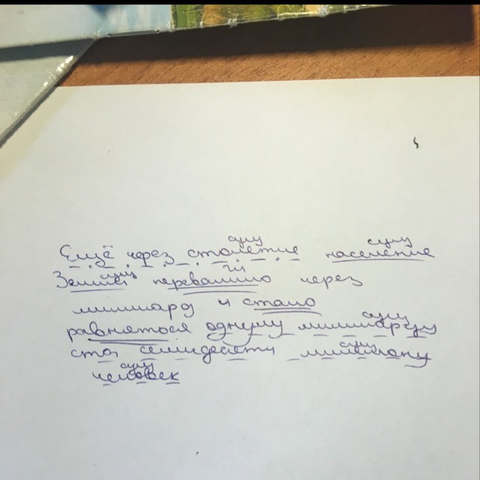 сущ сущ
Ещё через столетие население
сущ гл
Земли перевалило через
миллиард и стало
сущ
равняться одному миллиарду
сущ
ста семидесяти миллиону
сущ
человек